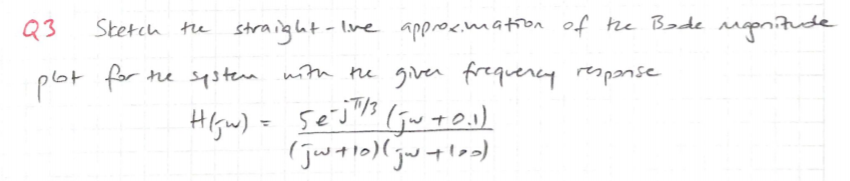 Q3 Sketch the straight-line approximation of the Bode magnitude
plot for the system with the given frequency response
H(jω) = 5e^-jπ/3 (jω+0.1)
(jω+10)(jω+100)